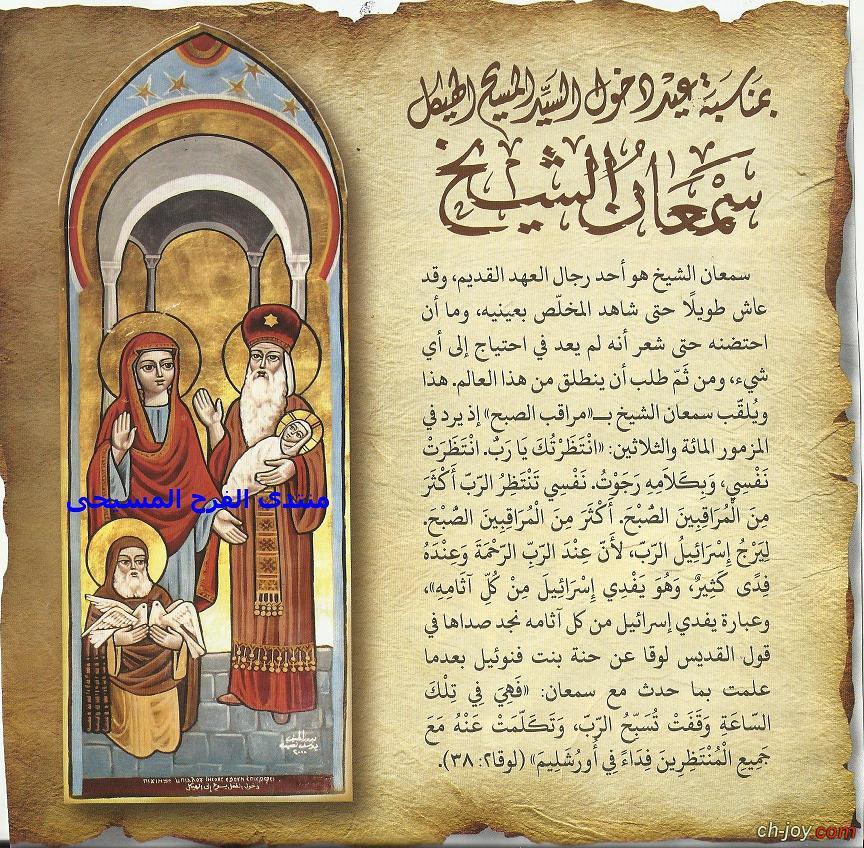 بمناسبة عيد دخول السيد المسيح الهيكل
سمعان الشيخ
سمعان الشيخ هو أحد رجال العهد القديم، وقد
عاش طويلًا حتى شاهد المخلّص بعينيه، وما أن
احتضنه حتى شعر أنه لم يعد في احتياج إلى أي
شيء، ومن ثَمّ طلب أن ينطلق من هذا العالم. هذا
ويُلقّب سمعان الشيخ بـ«مراقب الصبح» إذ يرد في
المزمور المائة والثلاثين: «انْتَظَرْتُكَ يَا رَبُّ. انْتَظَرَتْ
نَفْسِي، وَبِكَلَامِهِ رَجَوْتُ. نَفْسِي تَنْتَظِرُ الرَّبّ أَكْثَرَ
مِنَ الْمُرَاقِبِينَ الصُّبْحَ. أَكْثَرَ مِنَ الْمُرَاقِبِينَ الصُّبْحَ.
لِيَرْجُ إِسْرَائِيلُ الرَّبّ، لأَنَّ عِنْدَ الرَّبِّ الرَّحْمَةَ وَعِنْدَهُ
فِدًى كَثِيرٌ، وَهُوَ يَفْدِي إِسْرَائِيلَ مِنْ كُلِّ آثَامِهِ»،
وعبارة يفدي إسرائيل من كل آثامه نجد صداها في
قول القديس لوقا عن حنة بنت فنوئيل بعدما
علمت بما حدث مع سمعان: «فَهِيَ فِي تِلْكَ
السَّاعَةِ وَقَفَتْ تُسَبِّحُ الرَّبّ، وَتَكَلَّمَتْ عَنْهُ مَعَ
جَمِيعِ الْمُنْتَظِرِينَ فِدَاءً فِي أُورُشَلِيمَ» (لوقا٢: ٣٨).
منتدى الفرح المسيحى
دخول الطفل يسوع إلى الهيكل
ch-joy.com